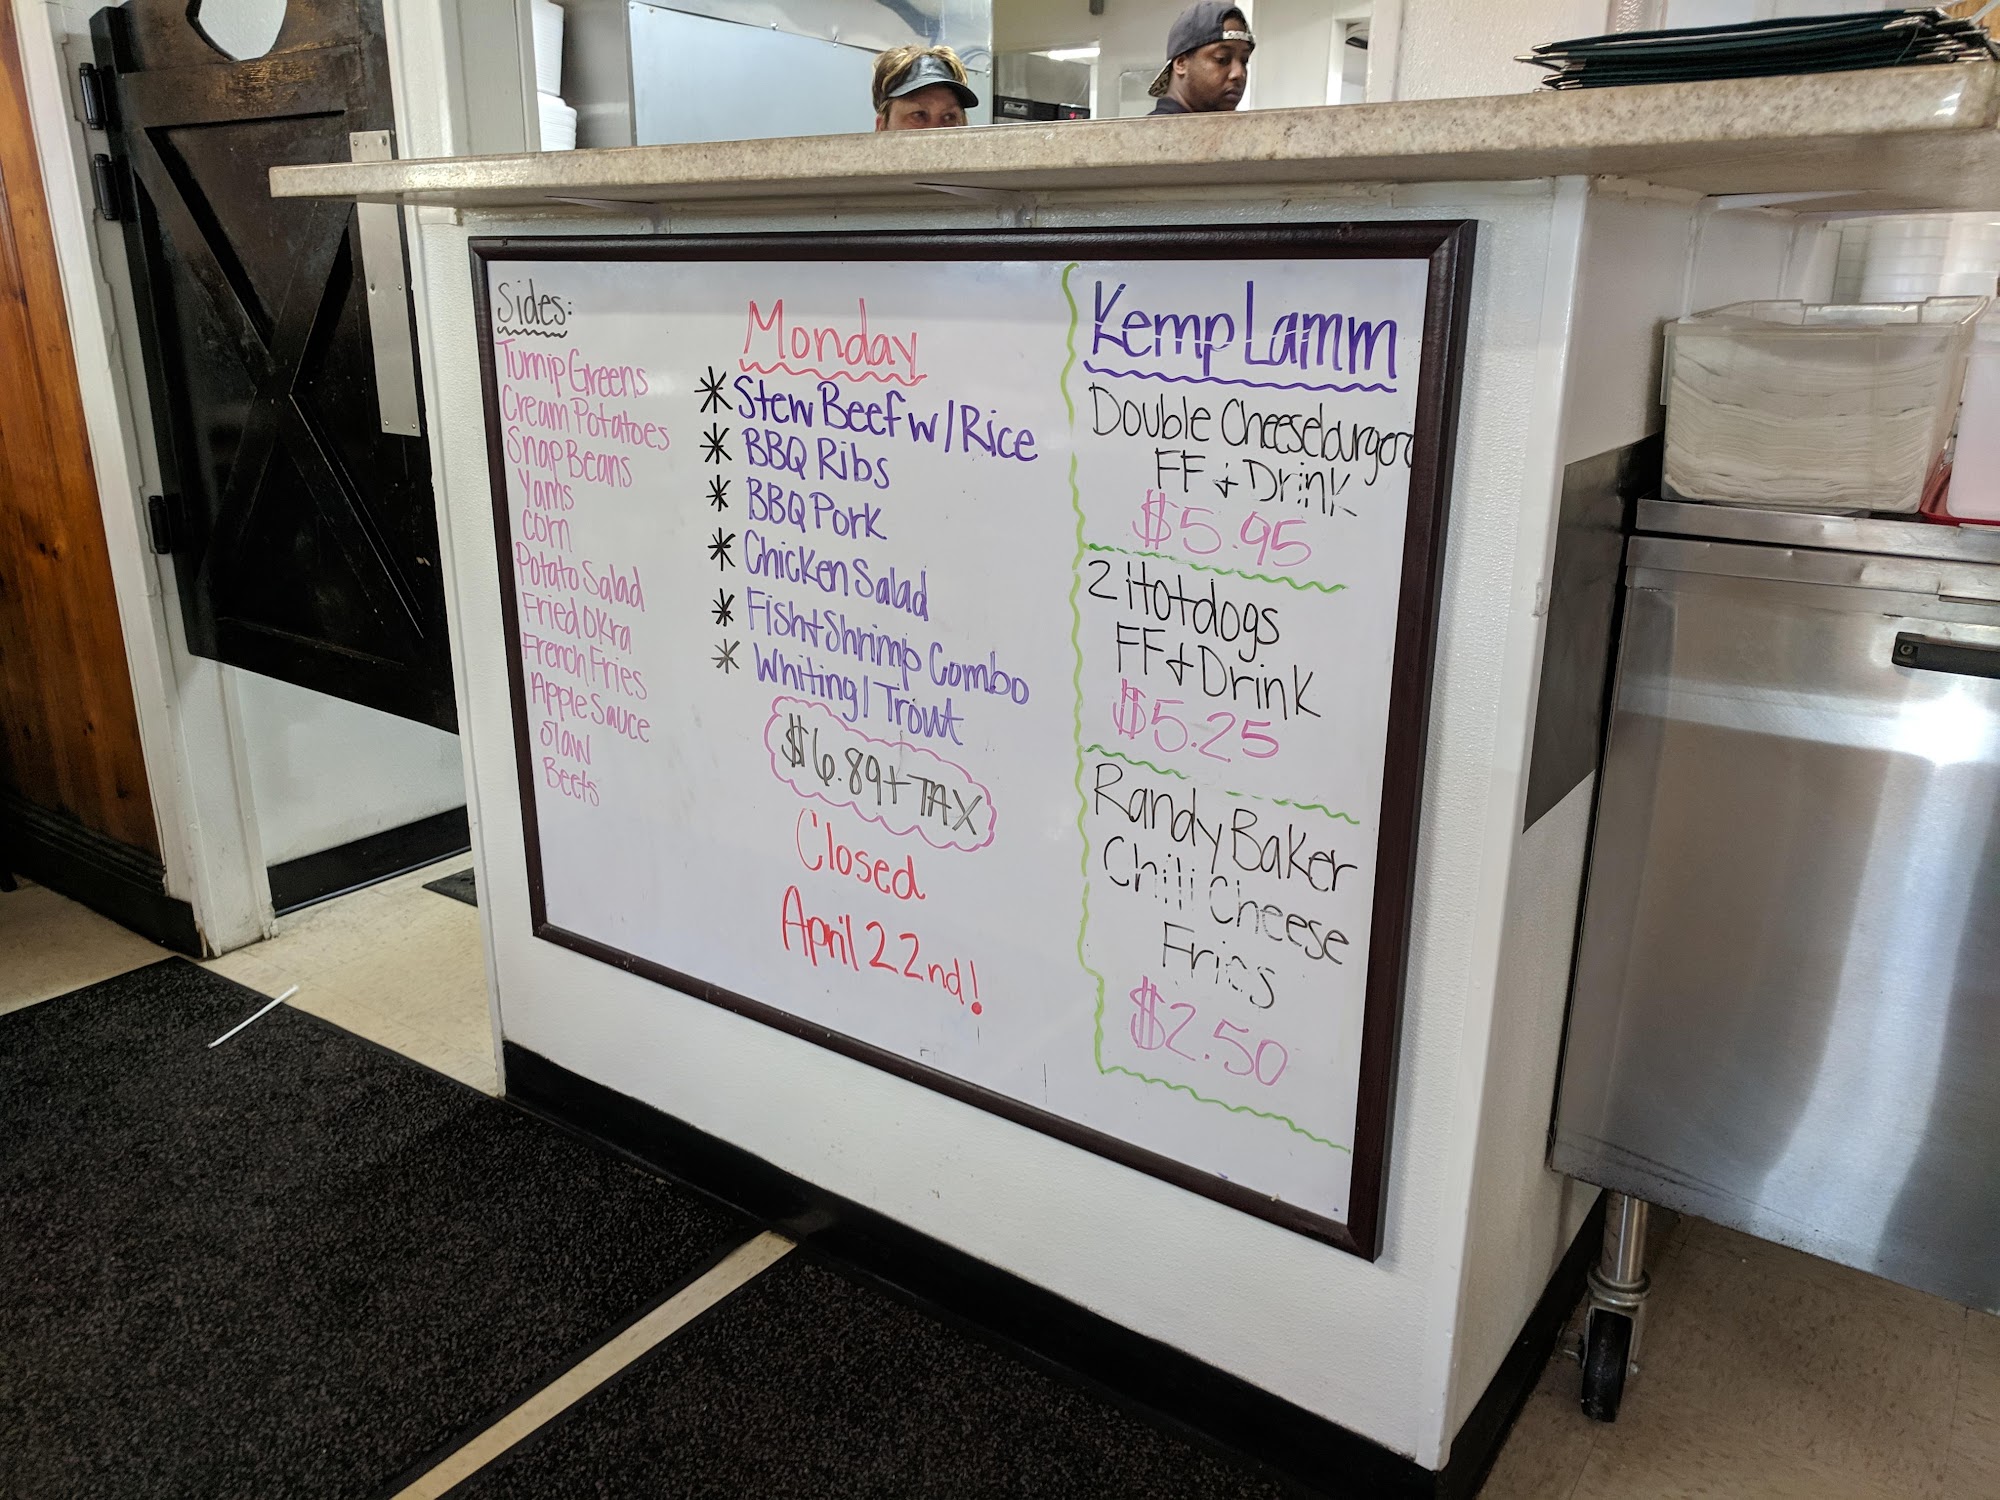 Sides:
Turnip Greens
Cream Potatoes
Snap Beans
Yams
Corn
Potato Salad
Fried Okra
French Fries
Apple Sauce
Slaw
Beets
Monday
* Stew Beef w/Rice
* BBQ Ribs
* BBQ Pork
* Chicken Salad
* Fish + Shrimp Combo
* Whiting/Trout
$6.89 + TAX
Closed
April 22nd!
Kemp Lamm
Double Cheeseburger
FF + Drink
$5.95
2 Hotdogs
FF + Drink
$5.25
Randy Baker
Chili Cheese
Fries
$2.50